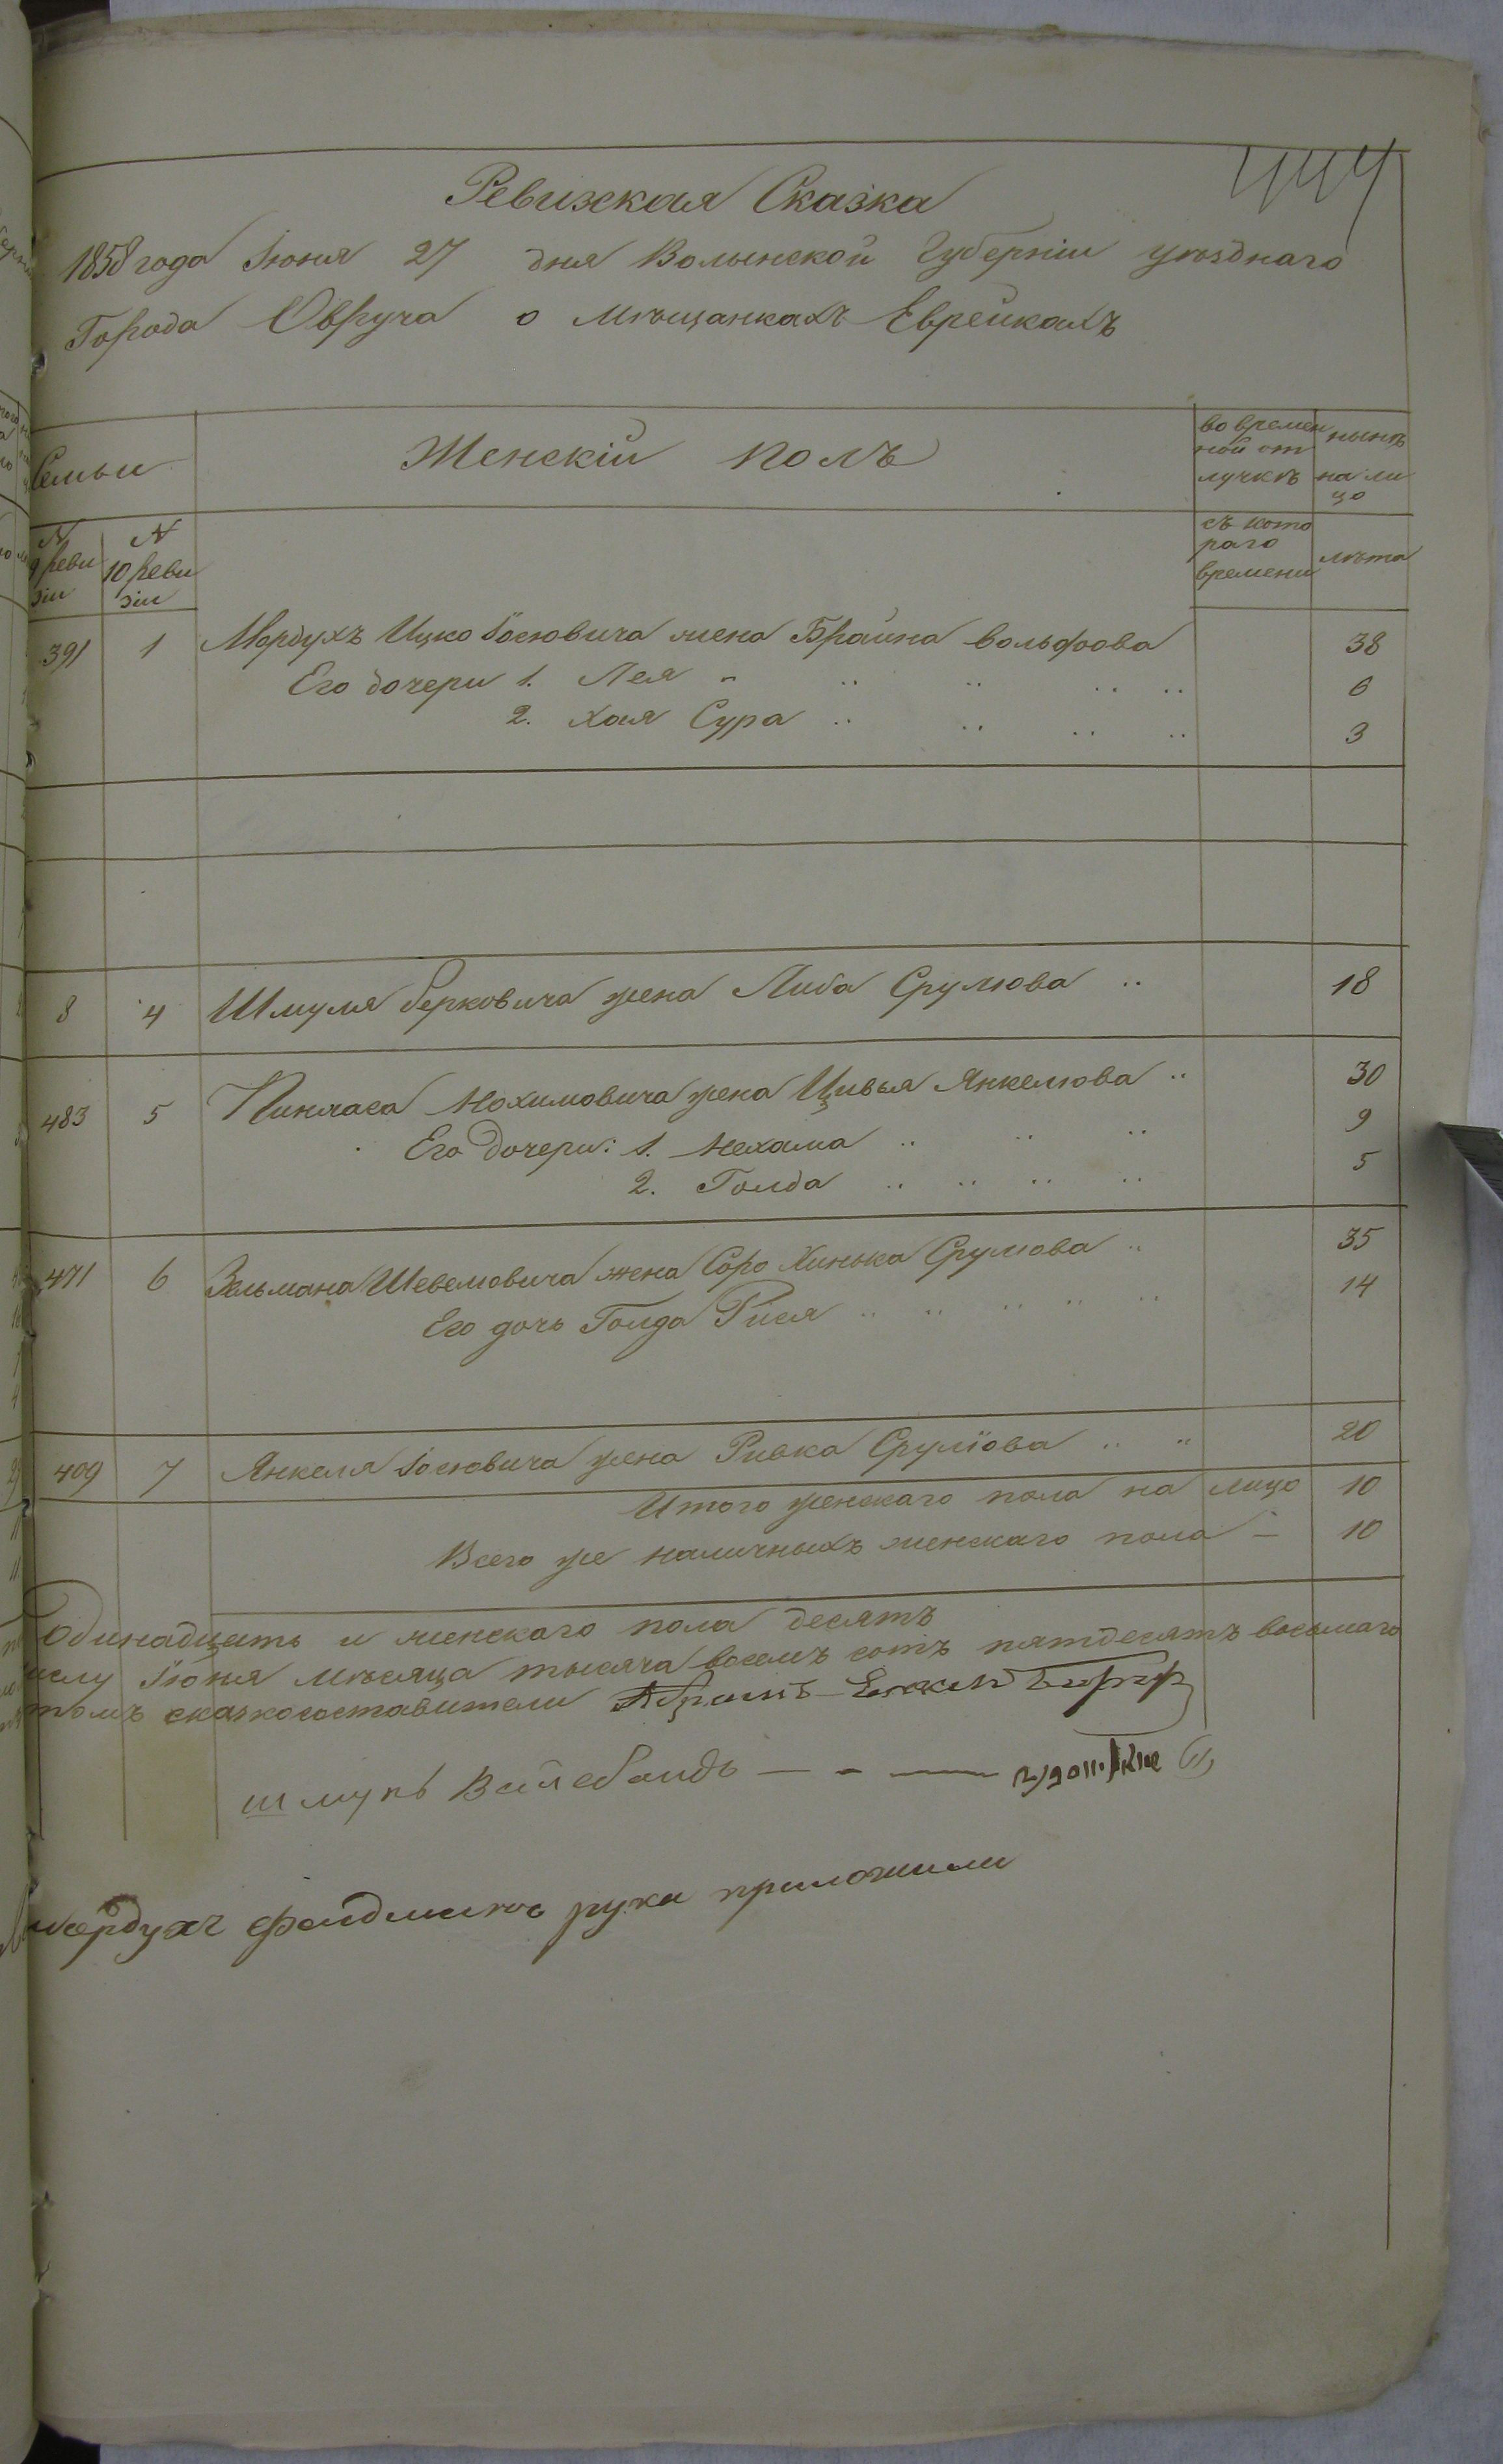 444
Ревизская Сказка
1858 года Іюня 27 дня Волынской Губерніи уѣзднаго
Города Овруча о мѣщанкахъ Еврейкахъ
Семьи
Женскій полъ
во времен
ной от
лучкѣ
нынѣ
на ли
цо
N
9 реви
зіи
N
10 реви
зіи
съ кото
раго
времени
лѣта
391 1 Мордухъ Ицко Іосіовича жена Брайна Вольфова 38
Его дочери 1. Лея 6
2. Хая Сура 3
8 4 Шмуля Берковича жена Либа Срулiова 18
483 5 Пинхаса Нохимовича жена Цивья Янкелiова 30
Его дочери: 1. Нехама 9
2. Голда 5
471 6 Зельмана Шевелiовича жена Соро Хинька Срулiова 35
Его дочь Голда Рися 14
409 7 Янкеля Іосіовича жена Ривка Сруліова 20
Итого женскаго пола на лицо 10
Всего же наличныхъ женскаго пола — 10
Одинадцать и женскаго пола десять
Іюня мѣсяца тысяча восемъ сотъ пятдесятъ восьмаго
сказкосоставители
шмуль
мордухъ руки приложили